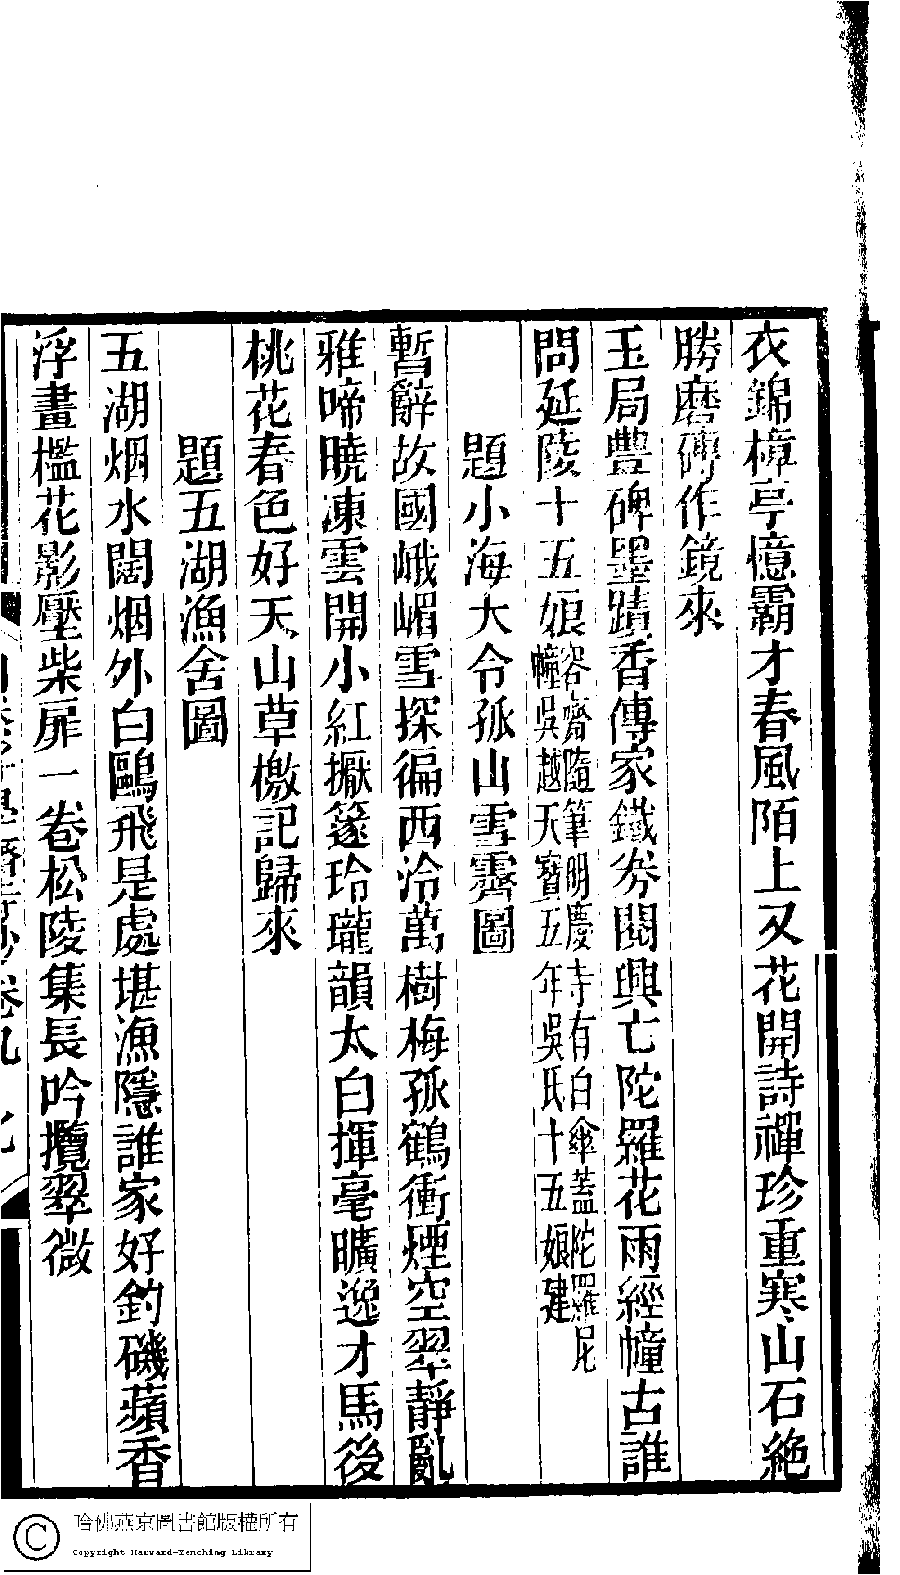 衣錦樟亭憶霸才春風陌上又花開詩禪珍重寒山石絶
勝磨磚作鏡來
玉局豐碑墨蹟香傳家鐵券閱興亡陀羅花雨經幢古誰
問延陵十五娘容齋隨筆明慶寺有白傘蓋陀羅尼
幢吳越天寶五年吳氏十五娘建
題小海大令孤山雪霽圖
暫辭故國峨嵋雪探徧西泠萬樹梅孤鶴衝煙空翠靜亂
雅啼曉凍雲開小紅擫篴玲瓏韻太白揮毫曠逸才馬後
桃花春色好天山草檄記歸來
題五湖漁舍圖
五湖烟水闊烟外白鷗飛是處堪漁隱誰家好釣磯蘋香
浮畫檻花影壓柴扉一卷松陵集長吟攬翠微
卷九
哈佛燕京圖書館版權所有
Copyright Harvard-Yenching Library